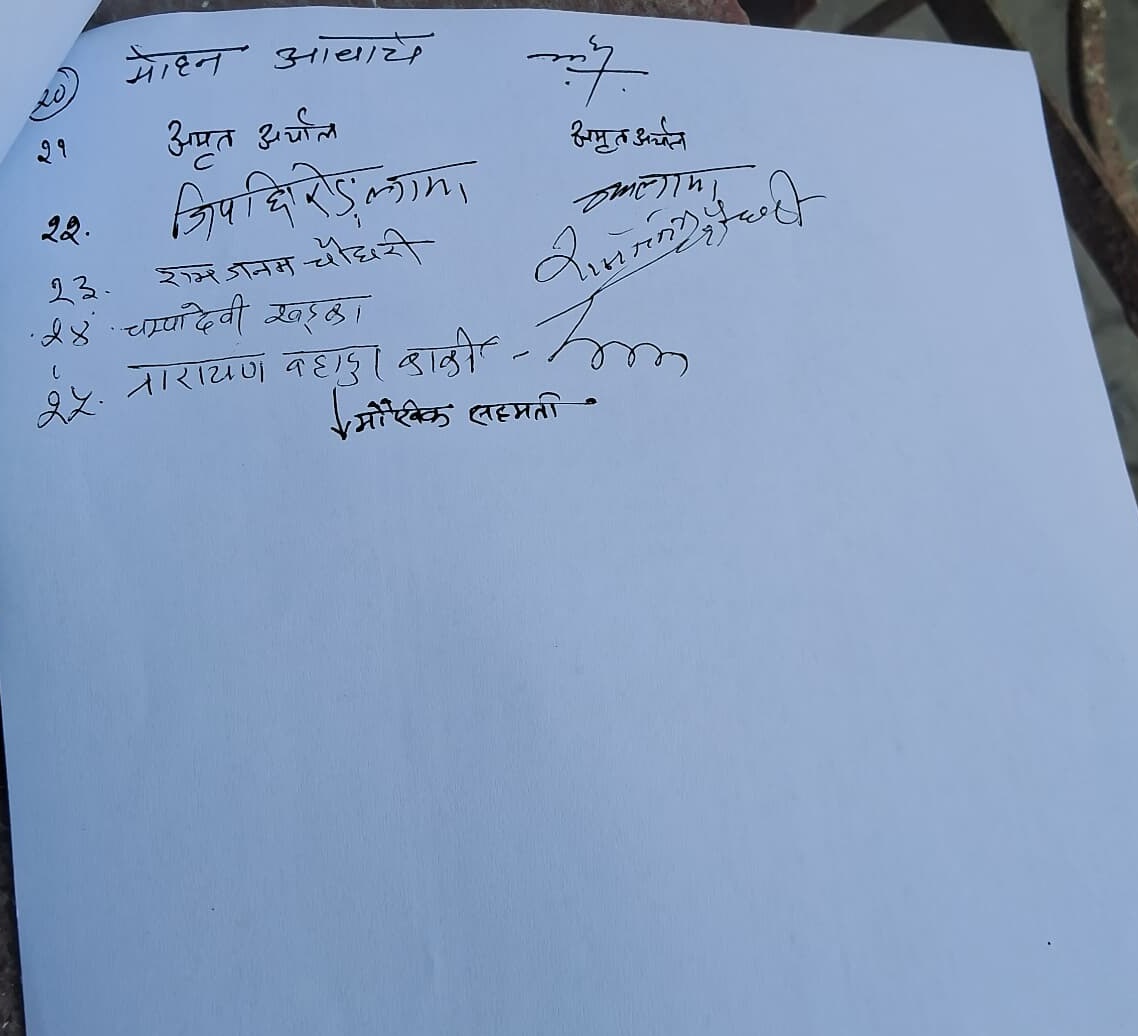 20 मोहन आचार्य
२१ अमृत अर्याल अमृत अर्याल
२२. लामा
२३. राम जनम चौधरी
२४. चम्पादेवी खड्का
२५. नारायण बहादुर कार्की -
↓ मौखिक सहमती